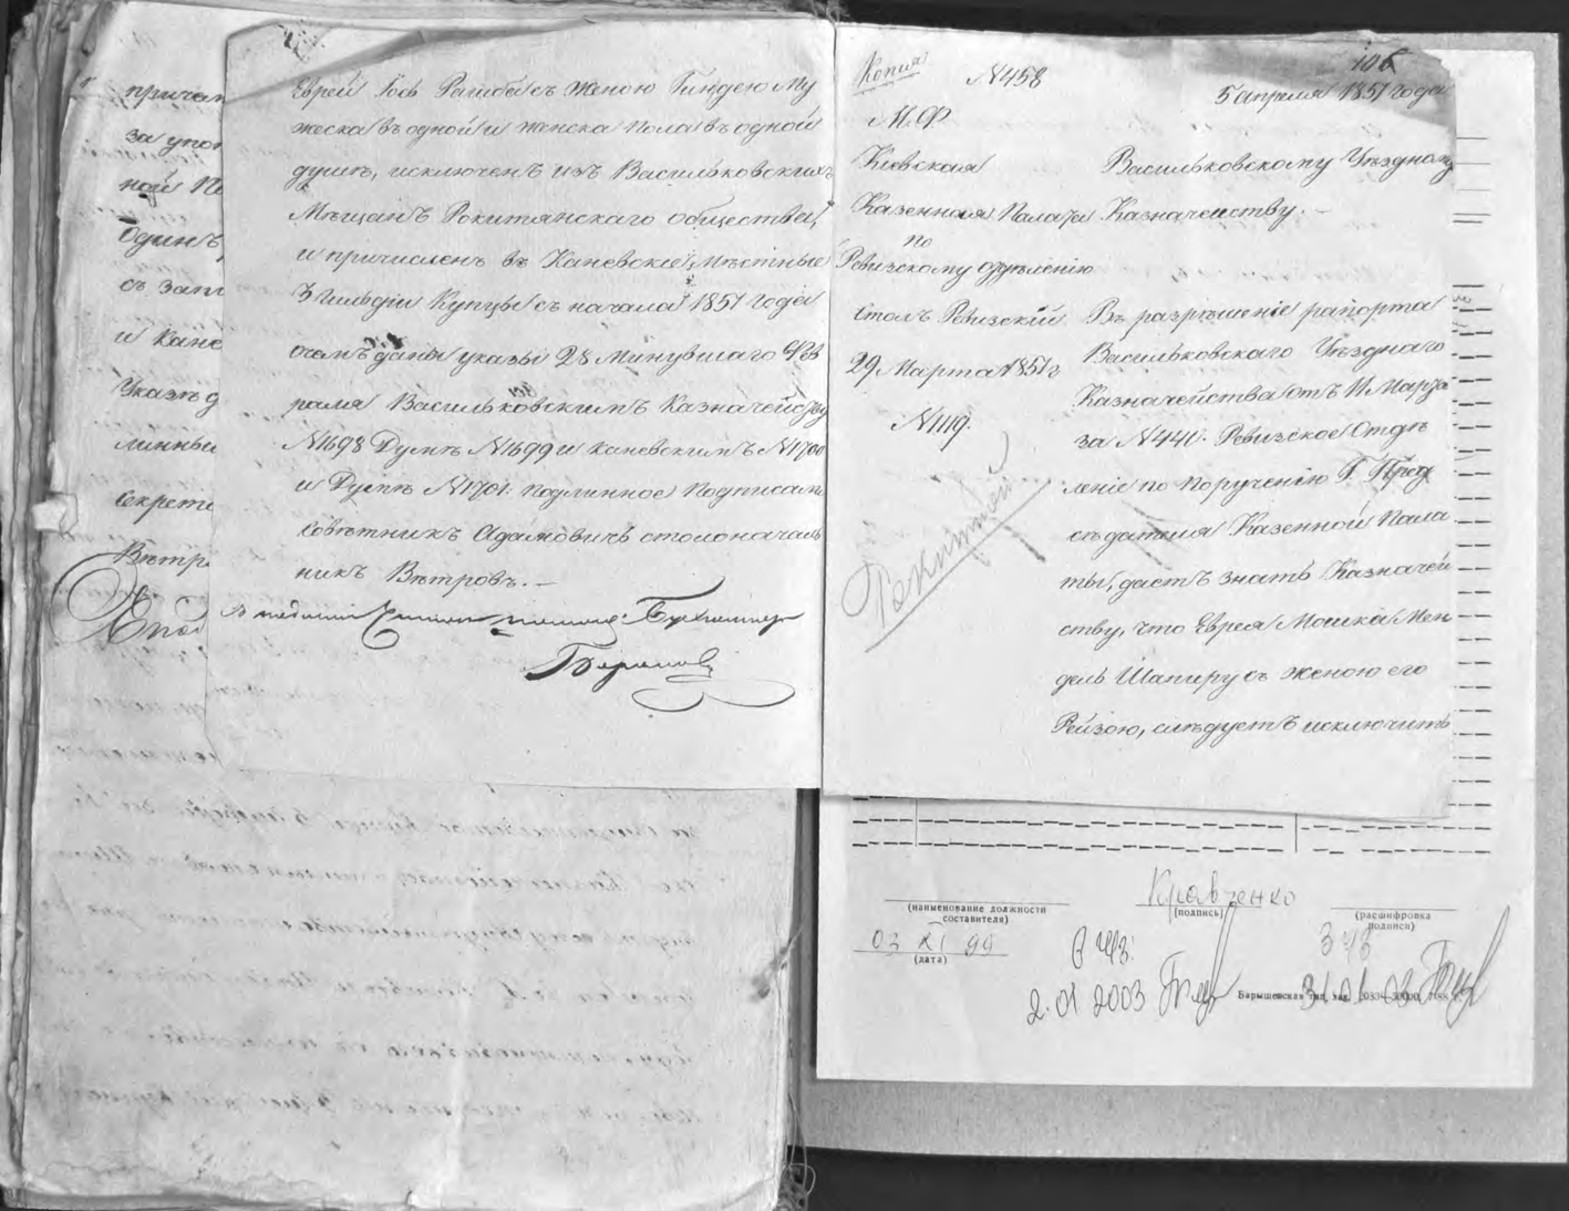 причис
за упо
ной Па
Одинъ,
съ зап
и Кане
Указъ д
линны
Секрета
Вѣтр
Еврей Іось с женою Гиндею Му
жеска въ одной и женска пола въ одной
душѣ, исключенъ изъ Васильковскихъ
Мѣщанъ Рокитянскаго общества,
и причисленъ въ Каневскіе, мѣстные
3 гильдіи Купцы съ начала 1851 года
очемъ даны указы 28 Минувшаго Фев
раля Васильковскимъ Казначейству
№1698 Думѣ №1699 и Каневскимъ №1700
и Думѣ №1701: подлинное подписали
Совѣтникъ Адамовичъ столоначаль
никъ Вѣтровъ. —
Копия №458
106
5 апреля 1851 года
М.Ф.
Кіевская
Казенная Палата
по
Ревизскому отдѣленію
Столъ Ревизскій
29 Марта 1851 г
№1119.
Васильковскому Уѣздному
Казначейству. —
Въ разрѣшеніе рапорта
Васильковскаго Уѣзднаго
Казначейства отъ 11 Марта
за №441. Ревизское Отдѣ
леніе по порученію Г. Пред
сѣдателя Казенной Пала
ты, даетъ знать Казначей
ству, что Еврея Мошка Мен
дель Шапиру съ женою его
Рейзою, слѣдуетъ исключить
Кравченко
(наименование должности
составителя)
(подпись)
(расшифровка
подписи)
03 XI 99
(дата)
2.01 2003
Барышевская тип. зак.